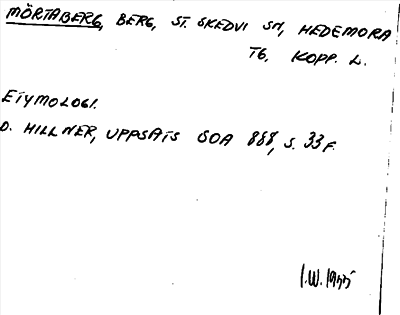 MÖRTABERG, BERG, ST. SKEDVI SN, HEDEMORA
TG, KOPP. L.
ETYMOLOGI.
D. HILLNER, UPPSATS SOA 888, S. 33 F.
I.W. 1955